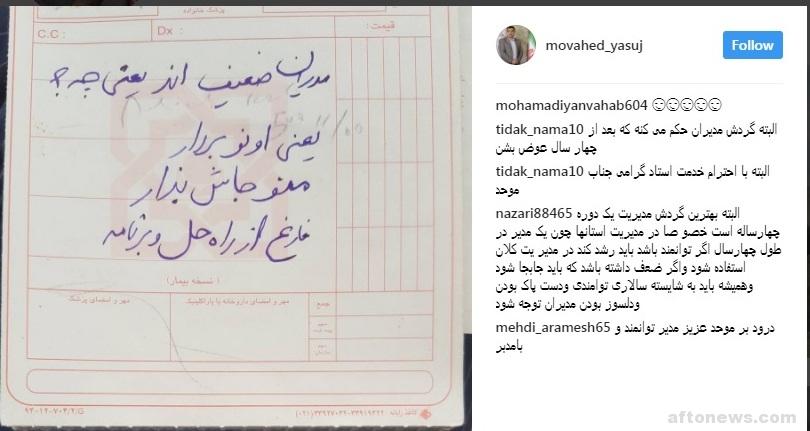 پزشک خانواده
C.C :
Dx :
مدیران ضعیف اند یعنی چه ؟
یعنی اونو بردار
منو جاش بذار
فارغ از راه حل و برنامه
( نسخه بیمار )
مهر و امضای پزشک
مهر و امضای داروخانه یا پاراکلینیک
جمع
سهم بیمار
سهم سازمان
93-12-703/2/G
کاغذ رایانه
movahed_yasuj
Follow
mohamadiyanvahab604
tidak_nama10 البته گردش مدیران حکم می کنه که بعد از
چهار سال عوض بشن
tidak_nama10 البته با احترام خدمت استاد گرامی جناب
موحد
nazari88465 البته بهترین گردش مدیریت یک دوره
چهارساله است خصو صا در مدیریت استانها چون یک مدیر در
طول چهارسال اگر توانمند باشد باید رشد کند در مدیر یت کلان
استفاده شود واگر ضعف داشته باشد که باید جابجا شود
وهمیشه باید به شایسته سالاری توامندی ودست پاک بودن
ودلسوز بودن مدیران توجه شود
mehdi_aramesh65 درود بر موحد عزیز مدیر توانمند و
بامدبر
aftonews.com